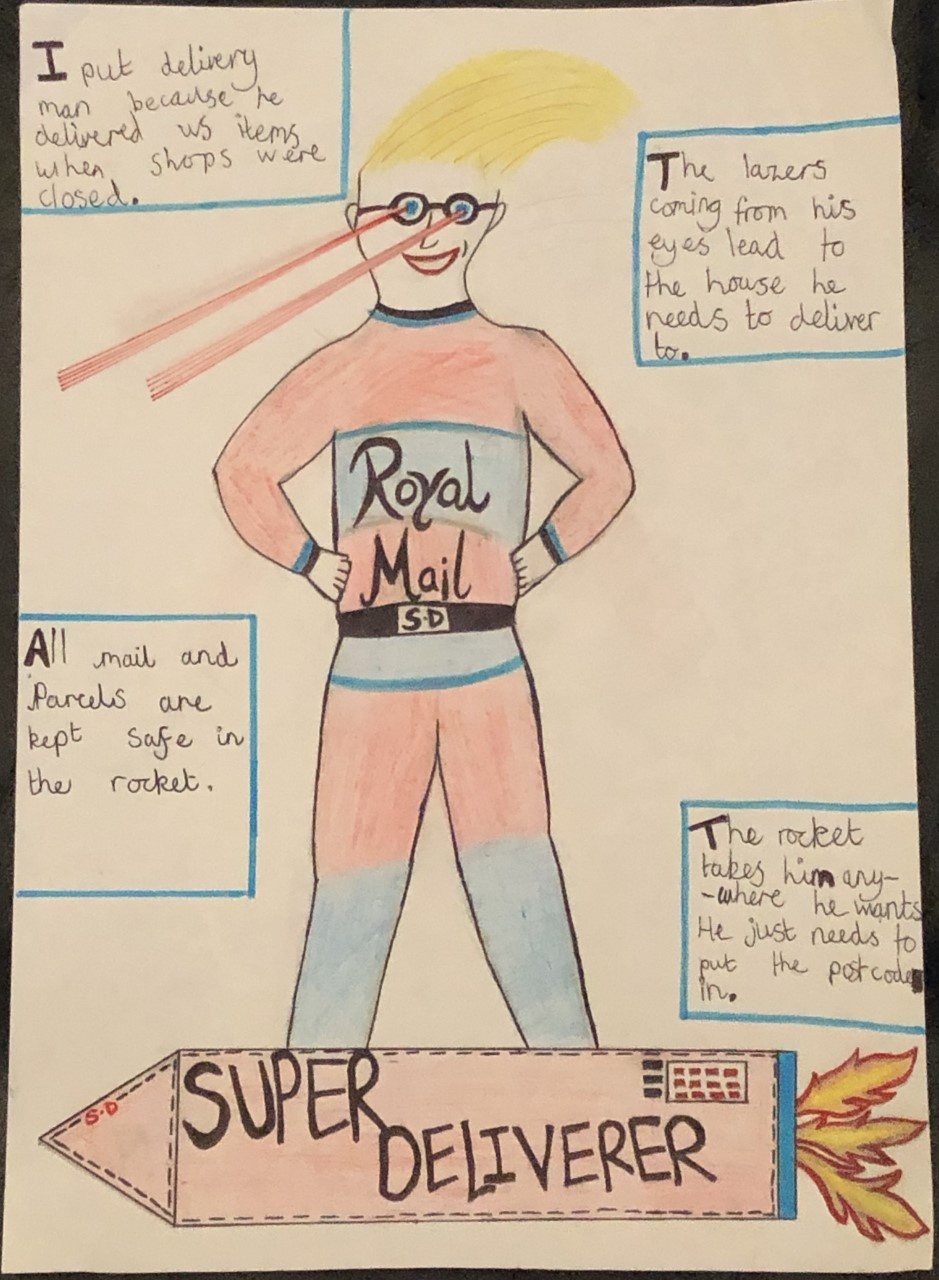 I put delivery
man because he
delivered us items
when shops were
closed.
The lazers
coming from his
eyes lead to
the house he
needs to deliver
to.
Royal
Mail
S·D
All mail and
Parcels are
kept safe in
the rocket.
The rocket
takes him any-
-where he wants
He just needs to
put the postcode
in.
S·D
SUPER
DELIVERER